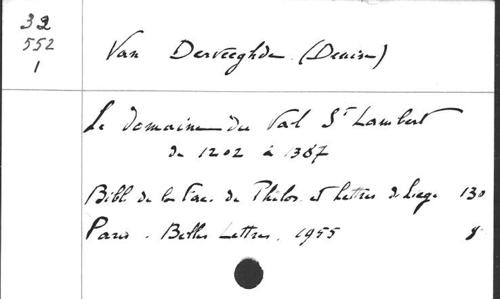 32
552
1
Van Derveeghde (Denise)
Le domaine du Val St Lambert
de 1202 à 1387
Bibl de la Fac. de Philos. et Lettres de Liege 130
Paris. Belles Lettres, 1955 8